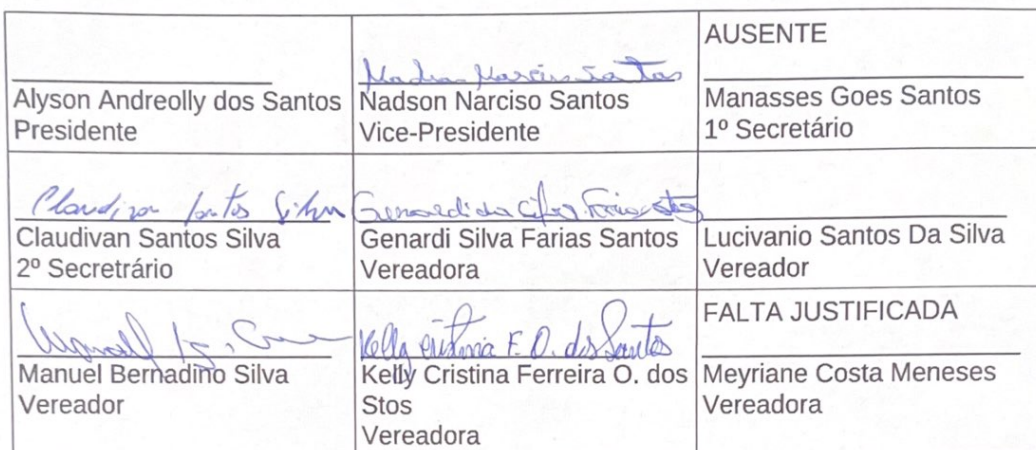 AUSENTE
Alyson Andreolly dos Santos
Presidente
Nadson Narciso Santos
Nadson Narciso Santos
Vice-Presidente
Manasses Goes Santos
1º Secretário
Claudivan Santos Silva
Claudivan Santos Silva
2º Secretrário
Genardi Silva Farias Santos
Vereadora
Lucivanio Santos Da Silva
Vereador
Manuel
Manuel Bernadino Silva
Vereador
Kelly Cristina F. O. dos Santos
Kelly Cristina Ferreira O. dos
Stos
Vereadora
FALTA JUSTIFICADA
Meyriane Costa Meneses
Vereadora